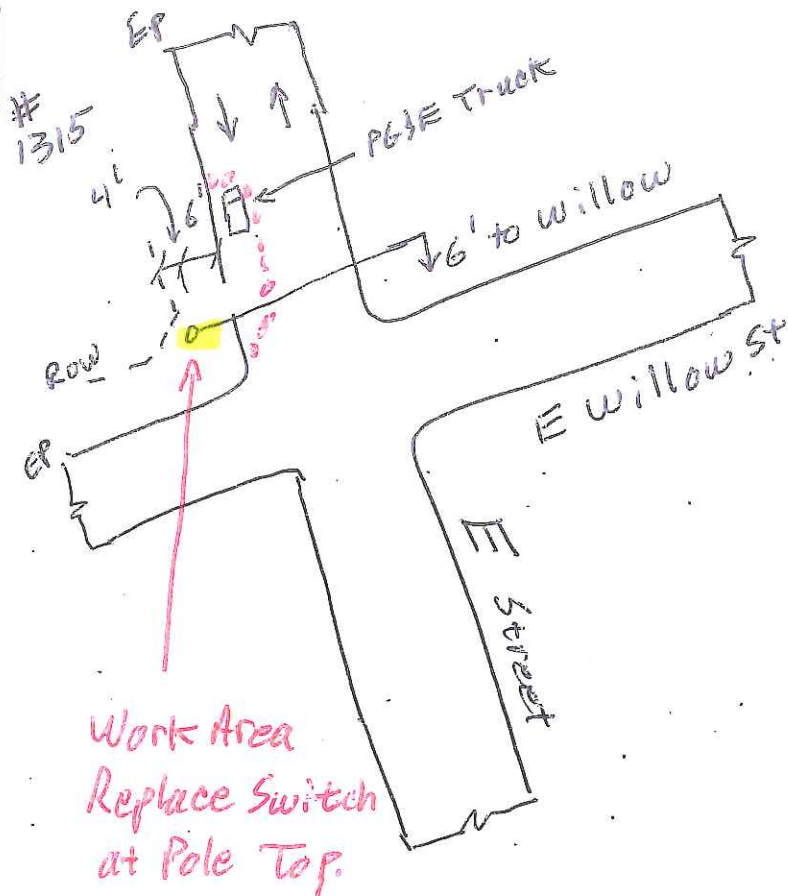 EP
#
1315
PG&E Truck
4'
6'
6' to Willow
ROW
E Willow St
EP
E Street
Work Area
Replace Switch
at Pole Top.